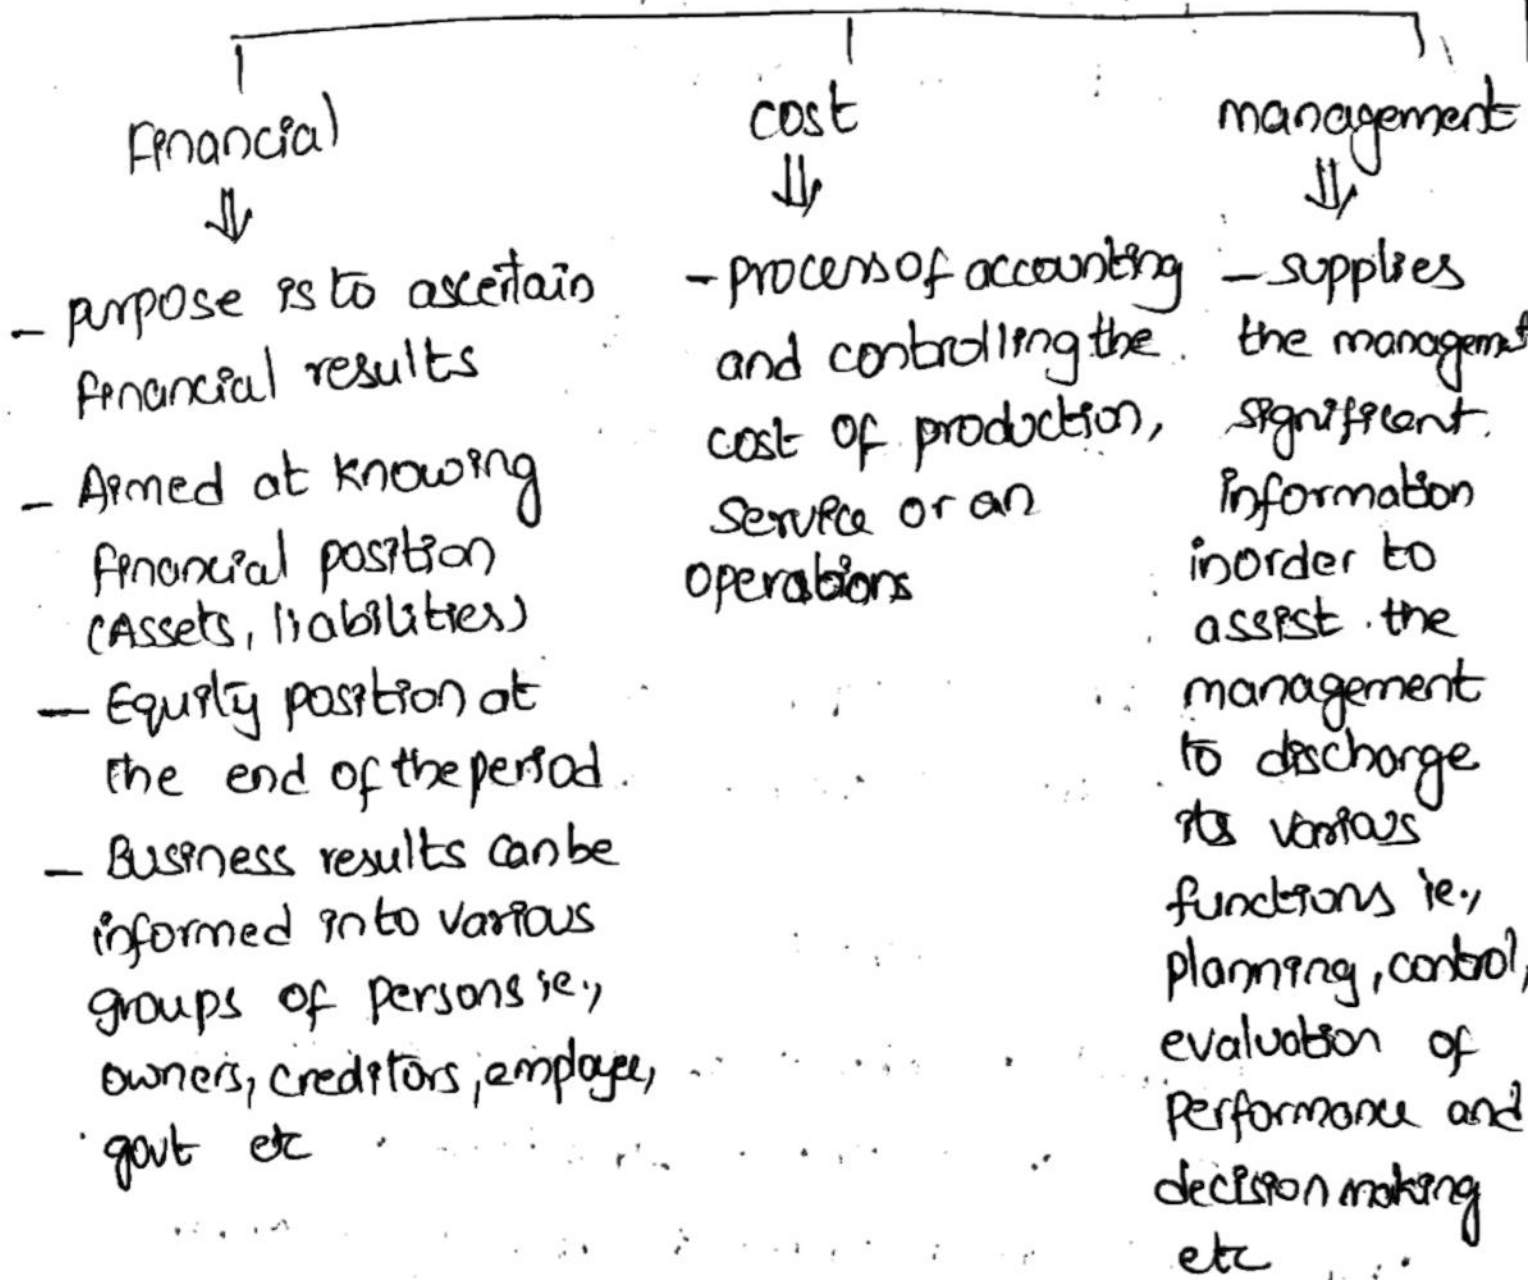 Financial
- purpose is to ascertain
financial results
- Aimed at knowing
financial position
(Assets, liabilities)
- Equity position at
the end of the period.
- Business results can be
informed into various
groups of persons ie.,
owners, creditors, employee,
govt etc
cost
- process of accounting
and controlling the
cost of production,
service or an
operations
management
- supplies
the managemt
significant
information
inorder to
assist the
management
to discharge
its various
functions ie.,
planning, control,
evaluation of
performance and
decision making
etc